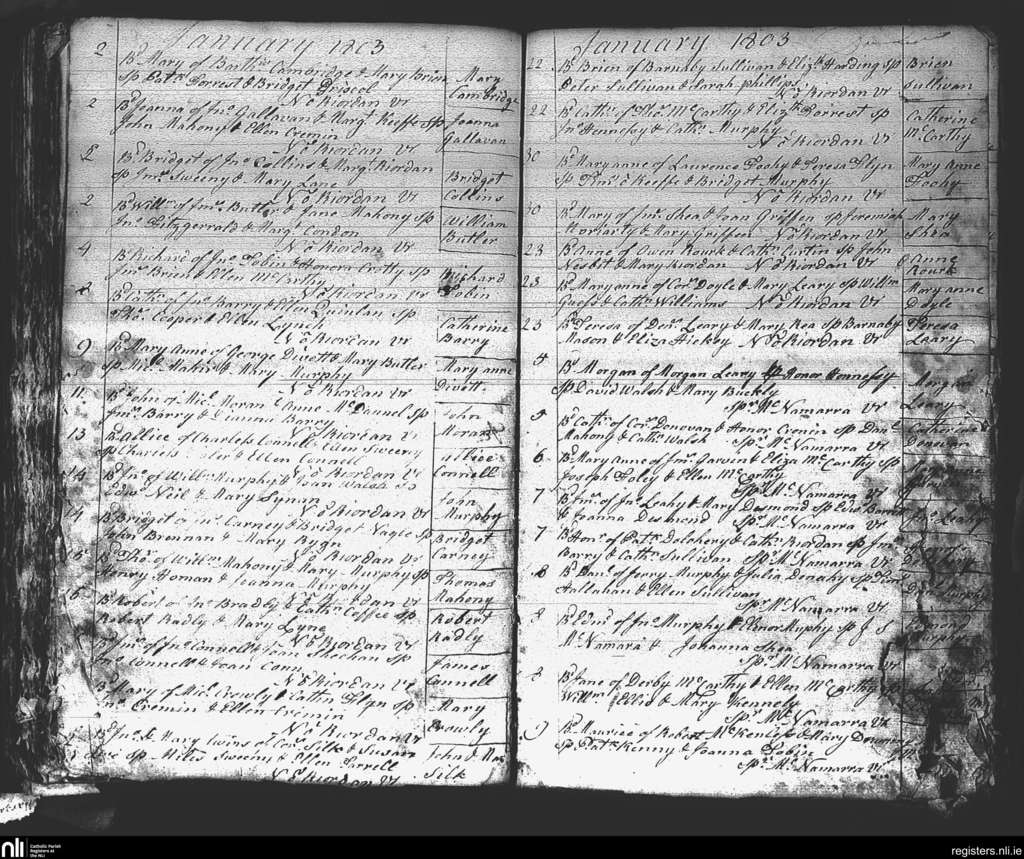 January 1803
2 Bd Mary of Barthw Cambridge & Mary Brien
Sp Patk Forrest & Bridget Driscol
Mary
Cambridge
N O Riordan Vr
2 Bd Joanna of Jno Gallavan & Margt Keeffe Sp
John Mahony & Ellen Cremin
Joanna
Gallavan
N O Riordan Vr
2 Bd Bridget of Jno Collins & Margt Riordan
Sp Jms Sweeny & Mary Lane
Bridget
Collins
N O Riordan Vr
2 Bd Willm of Jms Butler & Jane Mahony Sp
Jno Fitzgerrald & Margt Condon
William
Butler
N O Riordan Vr
4 Bd Richard of Jno Tobin & Honora Crotty Sp
Jms Brien & Ellen McCarthy
Richard
Tobin
N O Riordan Vr
Bd Cathe of Jno Barry & Ellen Quinlan Sp
Thos Cooper & Ellen Lynch
Catherine
Barry
N O Riordan Vr
9 Bd Mary Anne of George Divett & Mary Butler
Sp Michl & Mary Murphy
Mary anne
Divett
N O Riordan Vr
11 Bd John of Michl Moran & Anne McDannel Sp
Jms Barry & Barry
John
Moran
N O Riordan Vr
13 Bd Allice of Charles Connell Sweeny
Sp Charles & Ellen Connell
allice
Connell
N O Riordan Vr
14 Bd Jno of Willm Murphy & Joan Walsh Sp
Edwd Neil & Mary Synan
John
Murphy
N O Riordan Vr
14 Bd Bridget of Jms Carney & Bridget Nagle Sp
John Brennan & Mary Rygn
Bridget
Carney
N O Riordan Vr
15 Bd Thos of Willm Mahony & Mary Murphy Sp
Henry Homan & Joanna Murphy
Thomas
Mahony
N O Riordan Vr
Bd Robert of Jno Bradly & Cathe Coffee Sp
Robert Radly & Mary Lyne
Robert
Radly
N O Riordan Vr
Jms of Jno Connell & Joan Sheehan Sp
Connell & Joan Conn
James
Connell
N O Riordan Vr
Bd Mary of Michl Crowly & Cathn Flyn Sp
Jno Cremin & Ellen Crimin
Mary
Crowly
N O Riordan Vr
Bd Jno & Mary twins of Cors Silk & Susan
Sp Miles Sweeny & Ellen Farrell
John & Mar
Silk
N O Riordan Vr
January 1803
22 Bd Brien of Barnaby Sullivan & Elizth Harding Sp
Peter Sullivan & Sarah phillips
Brien
Sullivan
N O Riordan Vr
22 Bd Cathe of Thos McCarthy & Elizth Forrest Sp
Jno Hennessy & Cathe Murphy
Catherine
McCarthy
N O Riordan Vr
30 Bd Maryanne of Laurence Toohy & Teresa Flyn
Sp Thms O Keeffe & Bridget Murphy
Mary Anne
Toohy
N O Riordan Vr
30 Bd Mary of Jms Shea & Joan Griffen Sp Jeremiah
Moriarty & Mary Griffen N O Riordan Vr
Mary
Shea
23 Bd Anne of Owen Rourk & Cathe Curtin Sp John
Nesbit & Mary Riordan N O Riordan Vr
Anne
Rourk
23 Bd Maryanne of Cors Doyle & Mary Leary Sp Willm
& Cathe Williams N O Riordan Vr
Mary anne
Doyle
23 Bd Teresa of Denis Leary & Mary Rea Sp Barnaby
Mason & Eliza Hickey N O Riordan Vr
Teresa
Leary
4 Bd Morgan of Morgan Leary & Honor Honnessy
Sp David Walsh & Mary Buckly
Morgan
Leary
Spr McNamarra Vr
5 Bd Cathe of Cors Donovan & Honor Cronin Sp Danl
Mahony & Cathe Walsh Spr McNamarra Vr
Catherine
Donovan
6 Bd Mary Anne of Jms & Eliza McCarthy Sp
Joseph Foley & Ellen McCarthy
Mary anne
Spr McNamarra Vr
7 Bd Jms of Jno Leahy & Mary Desmond Sp Edwd Barrett
& Joanna Desmond Spr McNamarra Vr
Leahy
7 Bd of Patk Delohery & Cathe Riordan Sp Jms
Barry & Cathe Sullivan Spr McNamarra Vr
Delohery
8 Bd Danl of Jerry Murphy & Julia Donahy Sp
Callahan & Ellen Sullivan
Danl Murphy
Spr McNamarra Vr
8 Bd Edmd of Jno Murphy & Ellinor Muphy Sp J S
McNamara & Johanna Shea
Edmond
Murphy
Spr McNamarra Vr
8 Bd Jane of Derby McCarthy & Ellen McCarthy Sp
Willm Ellis & Mary Kennely
Spr McNamarra Vr
9 Bd Maurice of Robert McKenless & Mary
Sp Patk Kenny & Joanna
Spr McNamarra Vr
nli
Catholic Parish
Registers at
the NLI
registers.nli.ie